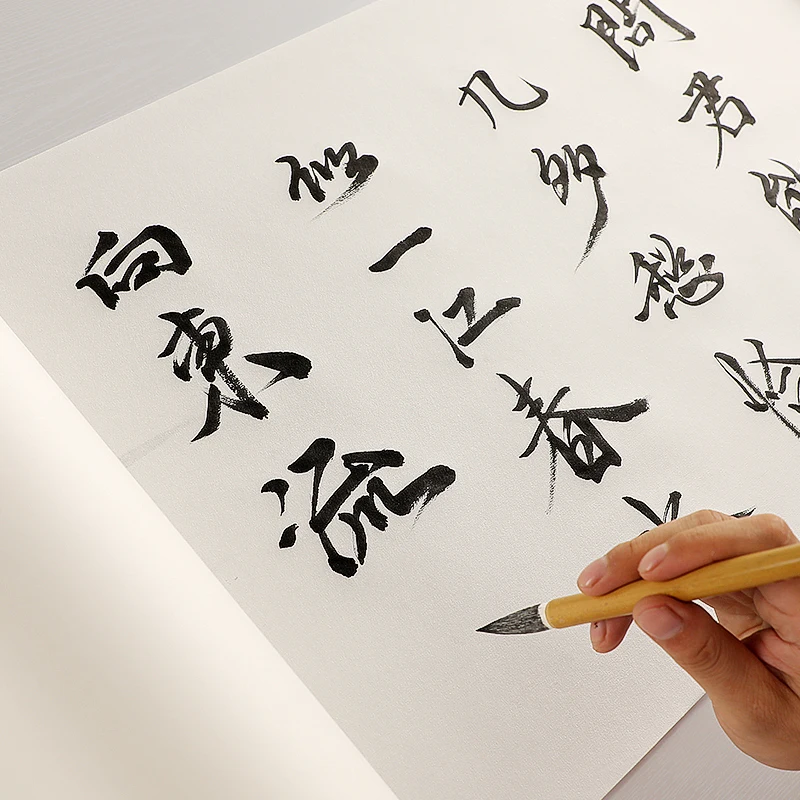 問君
几多愁恰
似一江春水
向東流